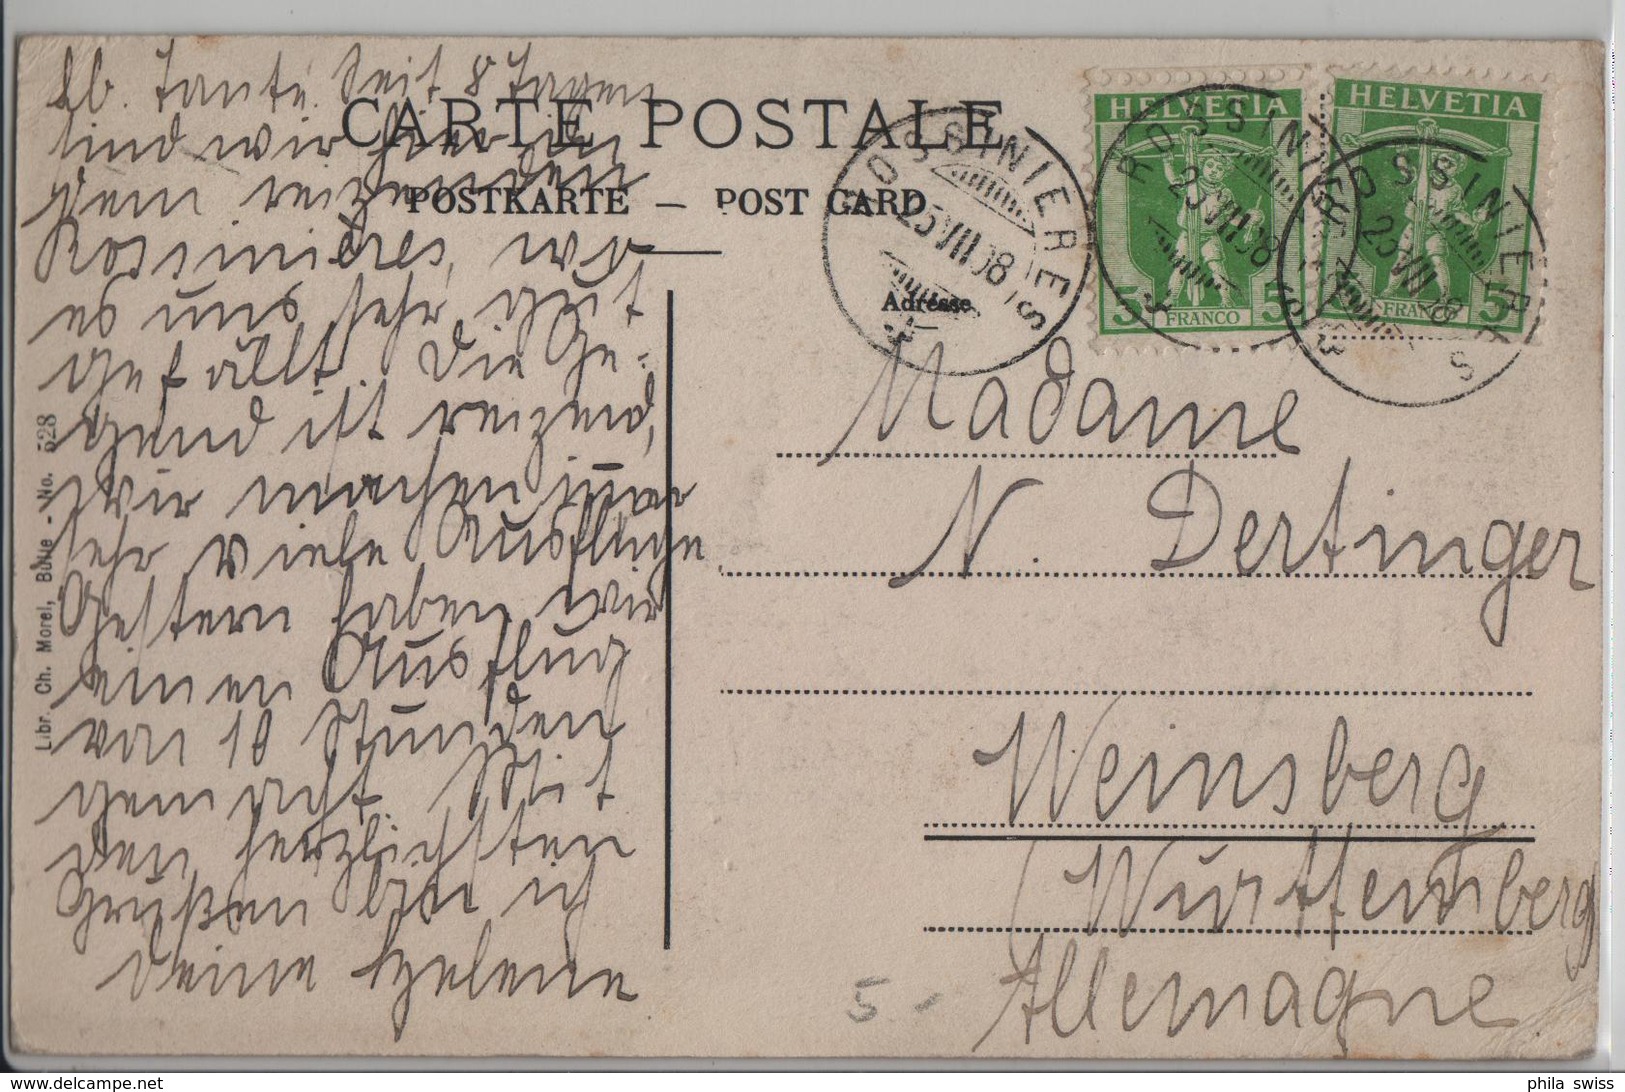 lb. Tante! Seit 8 Tagen
sind wir hier in
dem reizenden
Rossinières, wo
es uns sehr gut
gefällt. Die Ge-
gend ist reizend,
wir machen immer
sehr viele Ausflüge
Gestern haben wir
einen Ausflug
von 10 Stunden
gemacht. Mit
den herzlichsten
Grüßen bin ich
Deine Helene
CARTE POSTALE
POSTKARTE — POST CARD
Adresse
Libr. Ch. Morel, Bulle - No. 528
HELVETIA
5 FRANCO 5
HELVETIA
5 FRANCO 5
ROSSINIERES
25 VII 08
ROSSINIERES
ROSSINIERES
Madame
N. Dertinger
Weinsberg
(Württemberg
Allemagne
5 -
phila swiss